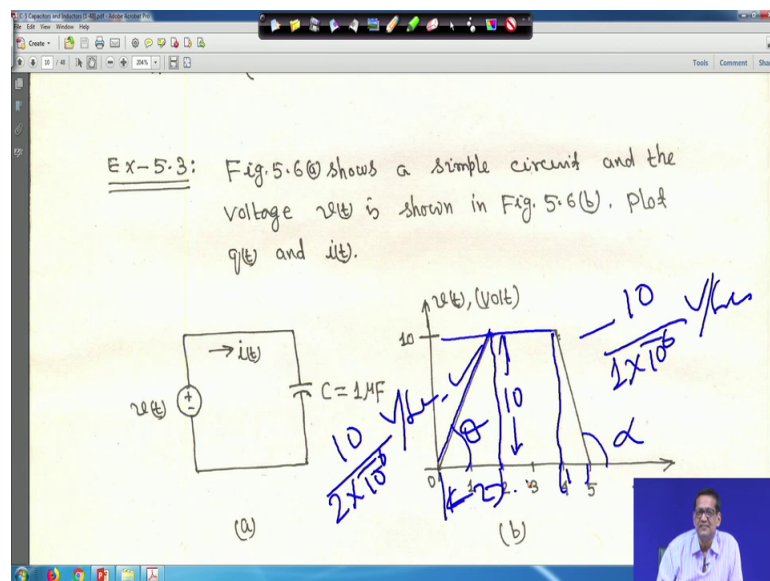 C-5 Capacitors and Inductors [5-48].pdf - Adobe Acrobat Pro
File Edit View Window Help
Create
10 / 48
204%
Tools Comment
Ex-5.3: Fig. 5.6(a) shows a simple circuit and the
voltage v(t) is shown in Fig. 5.6(b). Plot
q(t) and i(t).
v(t), (Volt)
10
→ i(t)
v(t)
+
-
C = 1μF
10
2×10⁻⁶
θ
10
- 10
1×10⁻⁶
α
0 1 2 3 4 5
(a)
(b)